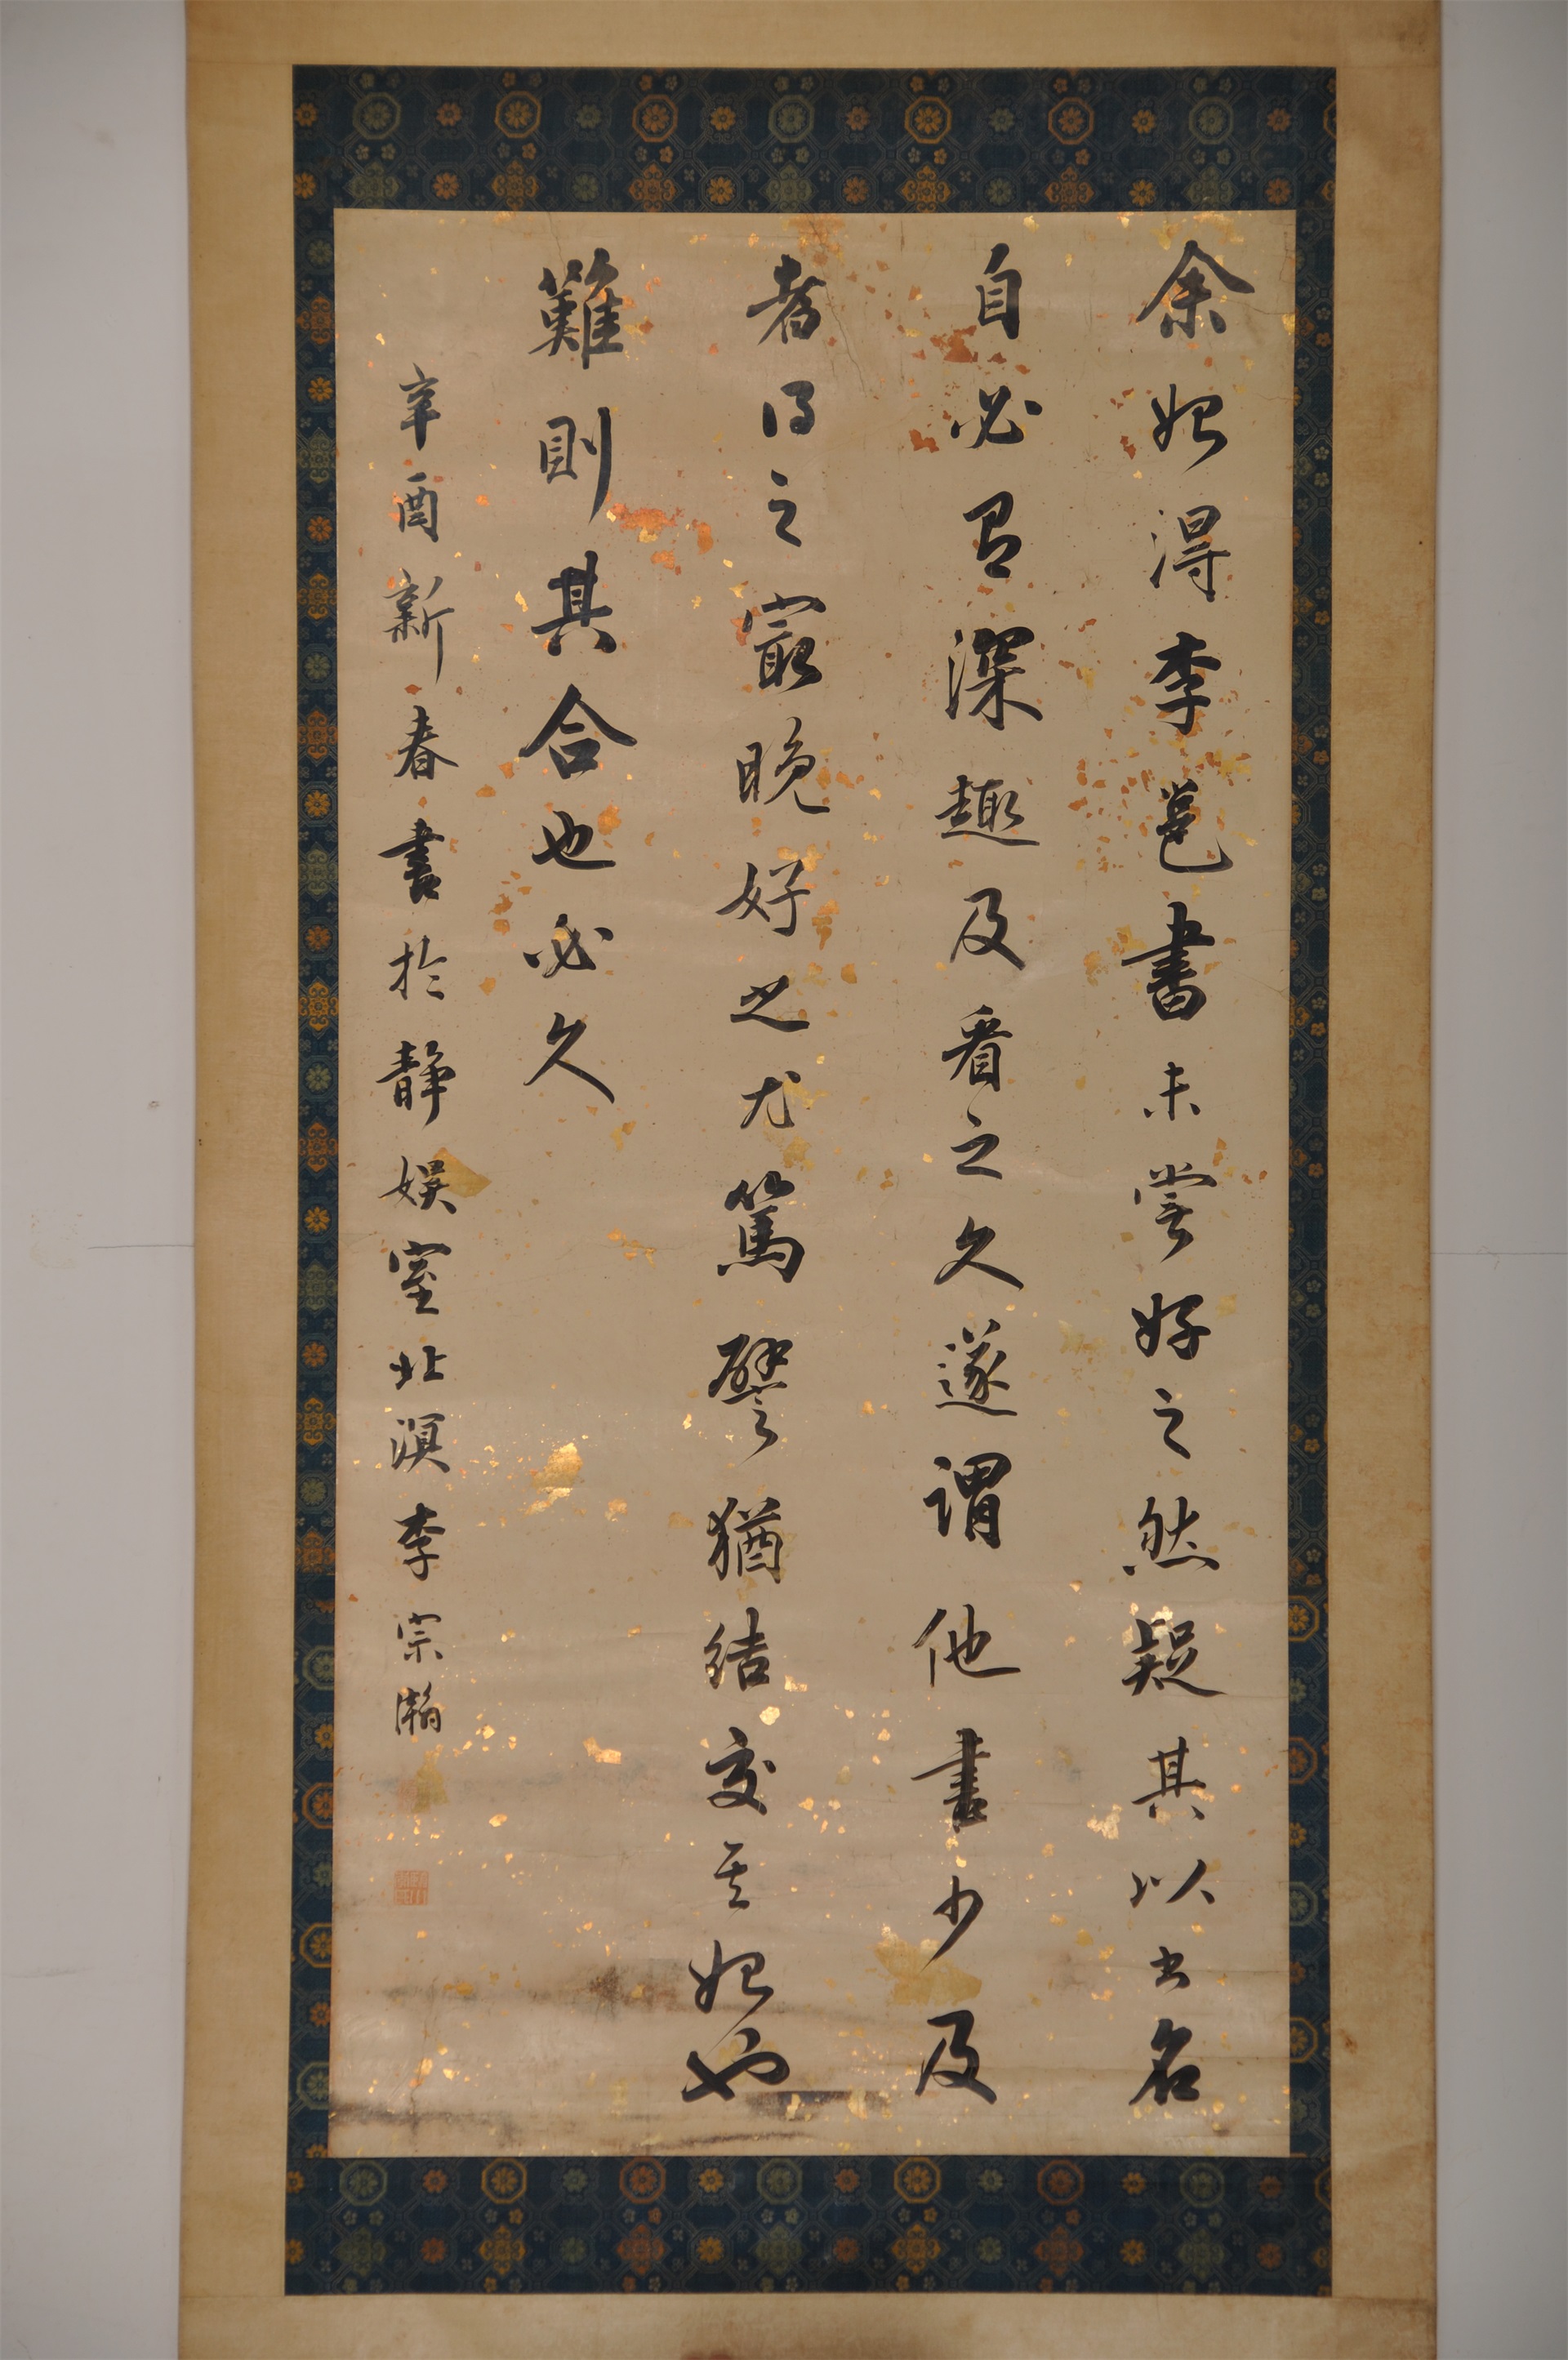 余始得李邕書未嘗好之然疑其以書名
自必有深趣及看之久遂謂他書少及
者得之最晚好之尤篤譬猶結交其始也
難則其合也必久
辛酉新春書於靜娛室北溟李宗瀚